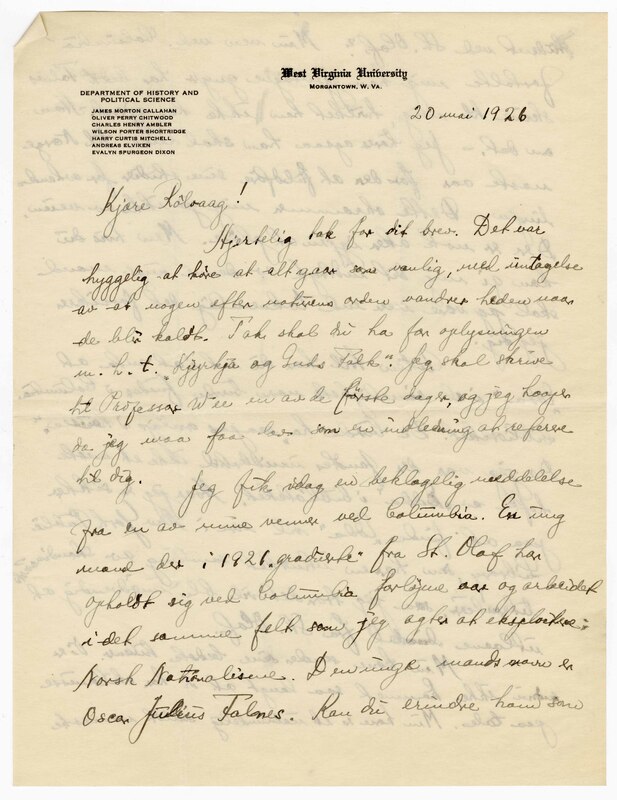 West Virginia University
Morgantown, W. Va.
DEPARTMENT OF HISTORY AND
POLITICAL SCIENCE
JAMES MORTON CALLAHAN
OLIVER PERRY CHITWOOD
CHARLES HENRY AMBLER
WILSON PORTER SHORTRIDGE
HARRY CURTIS MITCHELL
ANDREAS ELVIKEN
EVALYN SPURGEON DIXON
20 mai 1926
Kjære Rölvaag!
Hjertelig tak for dit brev. Det var
hyggelig at höre at alt gaar som vanlig, med untagelse
av at nogen efter naturens orden vandrer heden naar
de blir kaldt. Tak skal du ha for oplysningen
m. h. t. "Kjyrkja og Guds Folk". Jeg skal skrive
til Professor Wee en av de förste dager, og jeg haaper
da jeg maa faa lov som en indledning at referere
til dig. Jeg fik idag en beklagelig meddelelse
fra en av mine venner ved Columbia. En ung
mand der i 1921 "graduerte" fra St. Olaf har
opholdt sig ved Columbia forløpne aar og arbeidet
i det samme felt som jeg agter at eksploitere:
Norsk Nationalisme. Den unge mands navn er
Oscar Julius Falnes. Kan du erindre ham som